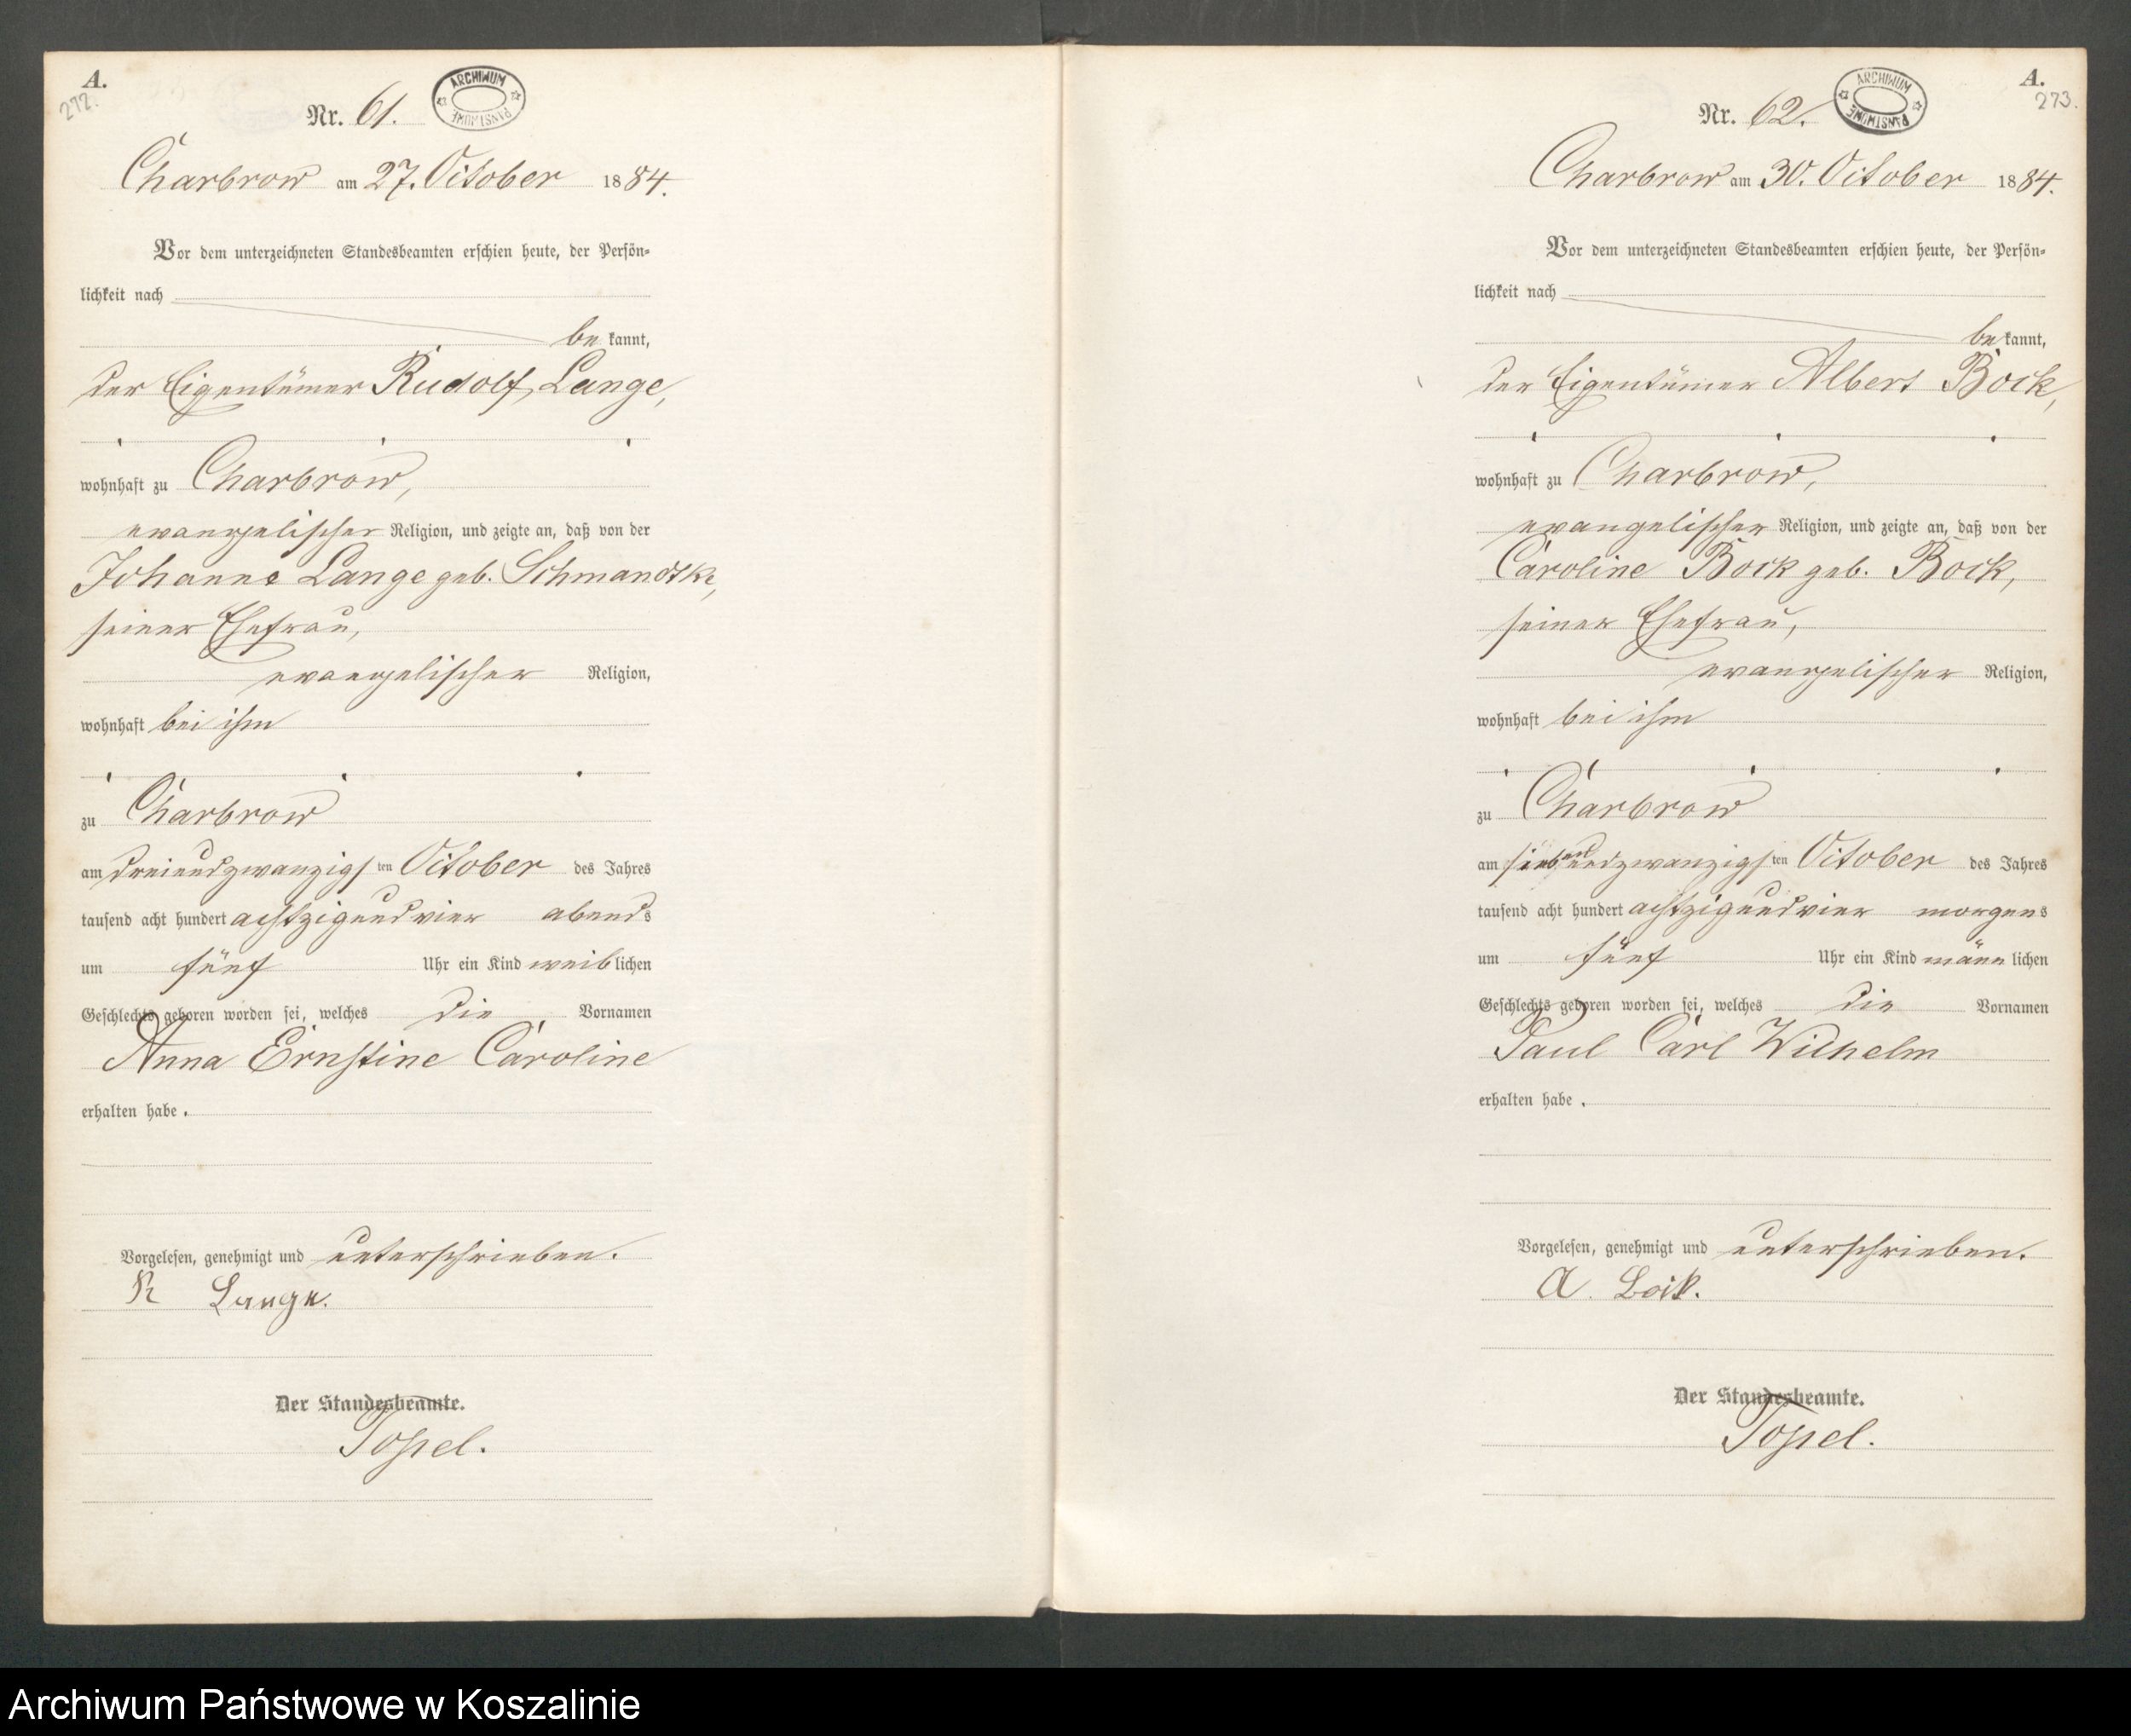 A.
272.
Nr. 61.
ARCHIWUM PAŃSTWOWE
Charbrow am 27. October 1884.
Vor dem unterzeichneten Standesbeamten erschien heute, der Persön-
lichkeit nach
bekannt,
der Eigentümer Rudolf Lange,
wohnhaft zu Charbrow,
evangelischer Religion, und zeigte an, daß von der
Johanne Lange geb. Schmandtke,
seiner Ehefrau,
evangelischer Religion,
wohnhaft bei ihm
zu Charbrow
am dreiundzwanzigsten October des Jahres
tausend acht hundert achtzigundvier abends
um fünf Uhr ein Kind weiblichen
Geschlechts geboren worden sei, welches die Vornamen
Anna Ernstine Caroline
erhalten habe.
Vorgelesen, genehmigt und unterschrieben.
R Lange.
Der Standesbeamte.
Topel.
A.
273.
Nr. 62.
ARCHIWUM PAŃSTWOWE
Charbrow am 30. October 1884.
Vor dem unterzeichneten Standesbeamten erschien heute, der Persön-
lichkeit nach
bekannt,
der Eigentümer Albert Bock,
wohnhaft zu Charbrow,
evangelischer Religion, und zeigte an, daß von der
Caroline Bock geb. Bock,
seiner Ehefrau,
evangelischer Religion,
wohnhaft bei ihm
zu Charbrow
am siebenundzwanzigsten October des Jahres
tausend acht hundert achtzigundvier morgens
um fünf Uhr ein Kind männlichen
Geschlechts geboren worden sei, welches die Vornamen
Paul Carl Wilhelm
erhalten habe.
Vorgelesen, genehmigt und unterschrieben.
A. Bock.
Der Standesbeamte.
Topel.
Archiwum Państwowe w Koszalinie